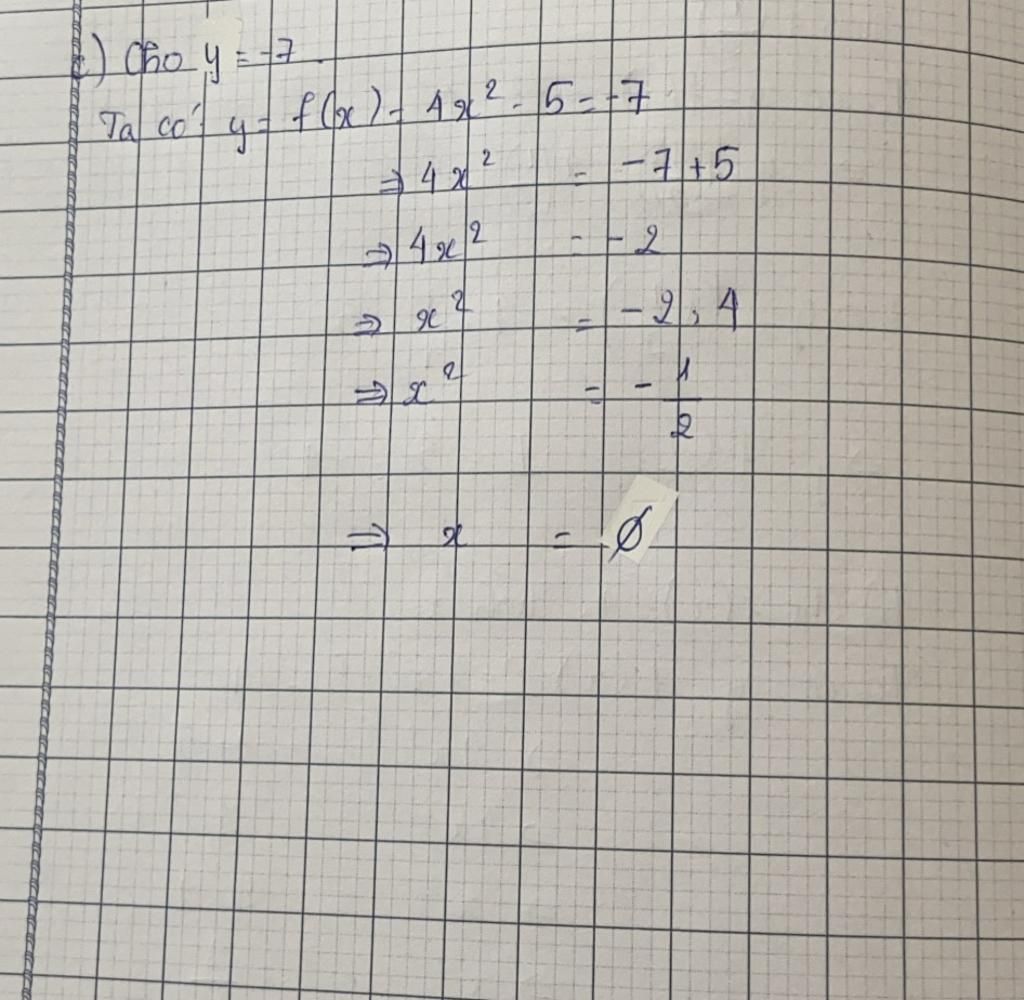 c) Cho y = -7.
Ta có y = f(x) = 4x² - 5 = -7
⇒ 4x² = -7 + 5
⇒ 4x² = -2
⇒ x² = -2 : 4
⇒ x² = -1/2
⇒ x = Ø